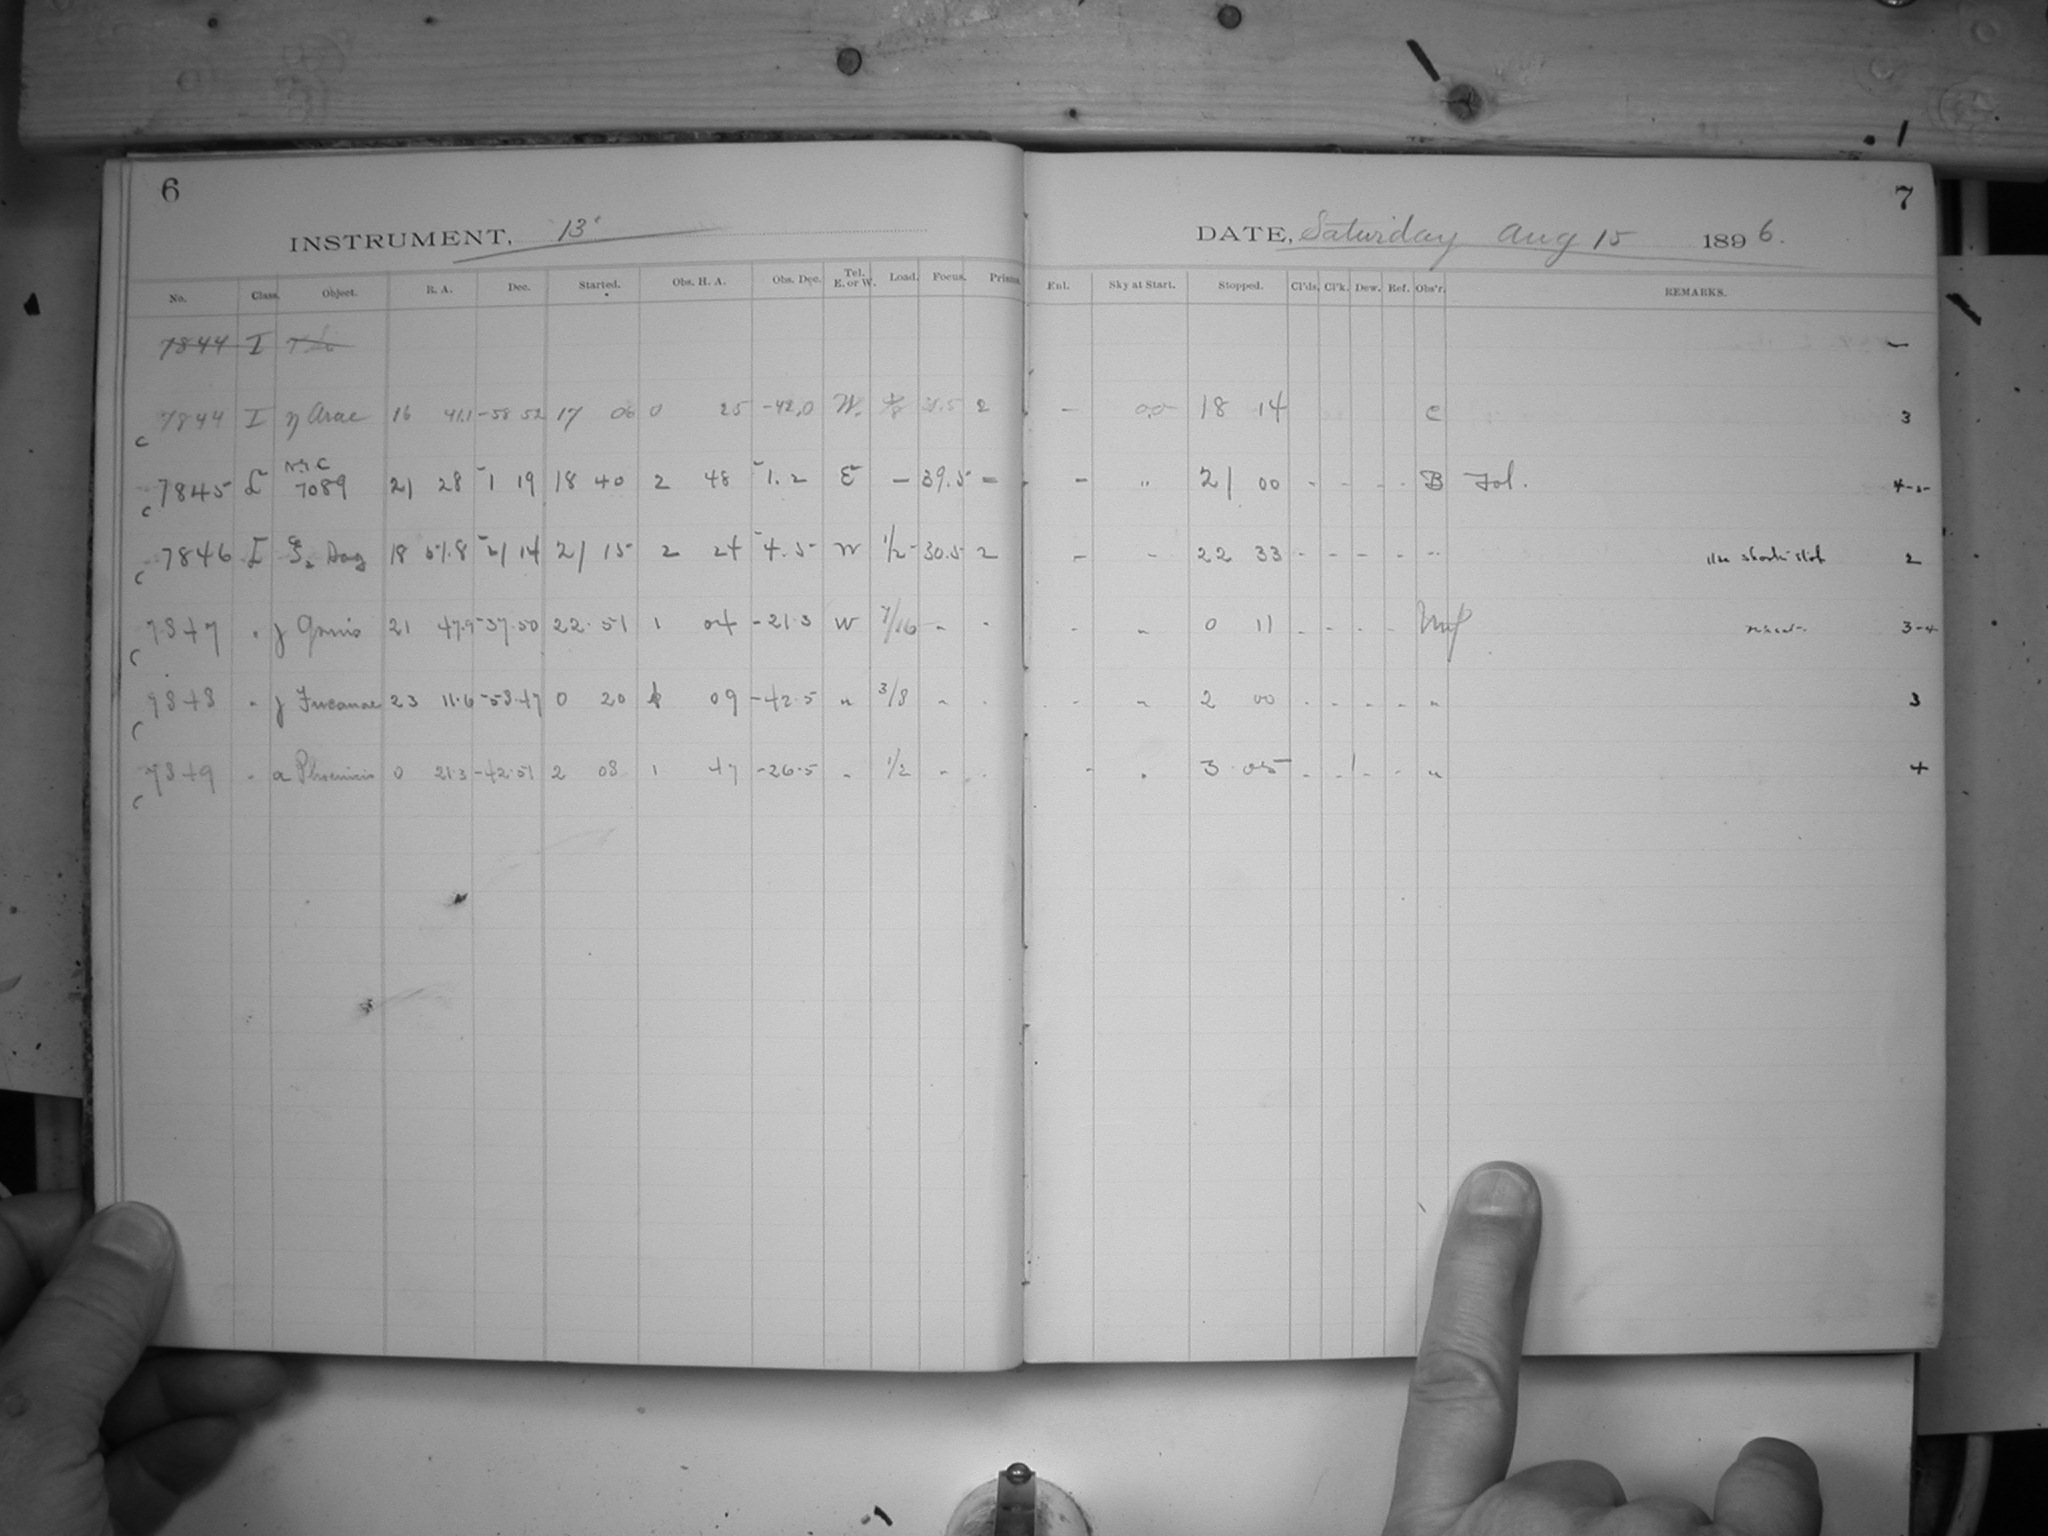 6
INSTRUMENT, 13"
No. Class. Object. R. A. Dec. Started. Obs. H. A. Obs. Dec. Tel. E. or W. Load. Focus. Prisms
7844 I
7844 I η Arae 16 41.1 -58 52 17 06 0 25 -42.0 W. 2
N.G.C
7845 L 7089 21 28 -1 19 18 40 2 48 -1.2 E - 39.5 -
7846 I ξ2 Sag 18 51.8 -21 14 21 15 2 24 -4.5 W 1/2 30.5 2
7847 " γ Gruis 21 47.9 -37.50 22.51 1 04 -21.3 W 7/16 " "
7848 " γ Tucanae 23 11.6 -58.47 0 20 09 -42.5 " 3/8 " "
7849 " α Phoenicis 0 21.3 -42.51 2 08 1 47 -26.5 " 1/2 " "
7
DATE, Saturday Aug 15 1896.
Enl. Sky at Start. Stopped. Cl'ds. Cl'k. Dew. Ref. Obs'r. REMARKS.
-
- 18 14 C 3
- " 21 00 - - - - B Fol. 4-5
- " 22 33 - - - - " Use short slit 2
- " 0 11 - - - - 3-4
- " 2 00 - - - - " 3
- " 3 05 - - - - " 4